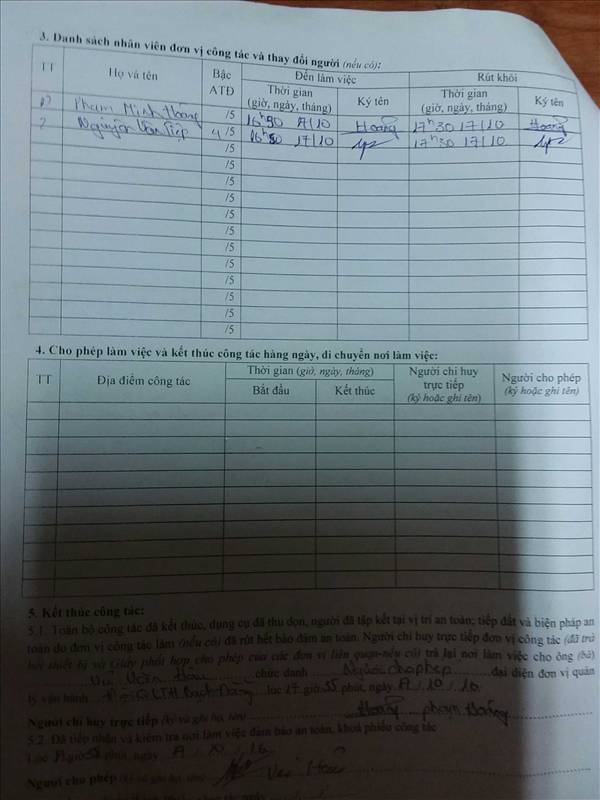 3. Danh sách nhân viên đơn vị công tác và thay đổi người (nếu có):
TT Họ và tên Bậc ATĐ Đến làm việc Rút khỏi
Thời gian (giờ, ngày, tháng) Ký tên Thời gian (giờ, ngày, tháng) Ký tên
Phạm Minh Hoàng /5 17/10 Hoàng 17h30 17/10 Hoàng
2 Nguyễn Văn Tiệp 4/5 17/10 17h30 17/10
/5
/5
/5
/5
/5
/5
/5
/5
/5
/5
/5
/5
4. Cho phép làm việc và kết thúc công tác hàng ngày, di chuyển nơi làm việc:
TT Địa điểm công tác Thời gian (giờ, ngày, tháng) Người chỉ huy trực tiếp (ký hoặc ghi tên) Người cho phép (ký hoặc ghi tên)
Bắt đầu Kết thúc
5. Kết thúc công tác:
5.1. Toàn bộ công tác đã kết thúc, dụng cụ đã thu dọn, người đã tập kết tại vị trí an toàn; tiếp đất và biện pháp an
toàn do đơn vị công tác làm (nếu có) đã rút hết bảo đảm an toàn. Người chỉ huy trực tiếp đơn vị công tác (đã trả
hết thiết bị và Giấy phối hợp cho phép của các đơn vị liên quan-nếu có) trả lại nơi làm việc cho ông (bà)
chức danh Người cho phép đại diện đơn vị quản
lý vận hành lúc 17 giờ 55 phút, ngày 17 / 10 / 16
Người chỉ huy trực tiếp (ký và ghi họ, tên) Hoàng phạm Hoàng
5.2. Đã tiếp nhận và kiểm tra nơi làm việc đảm bảo an toàn, khoá phiếu công tác
Lúc giờ phút, ngày 17 / 10 / 16
Người cho phép (ký và ghi họ, tên)